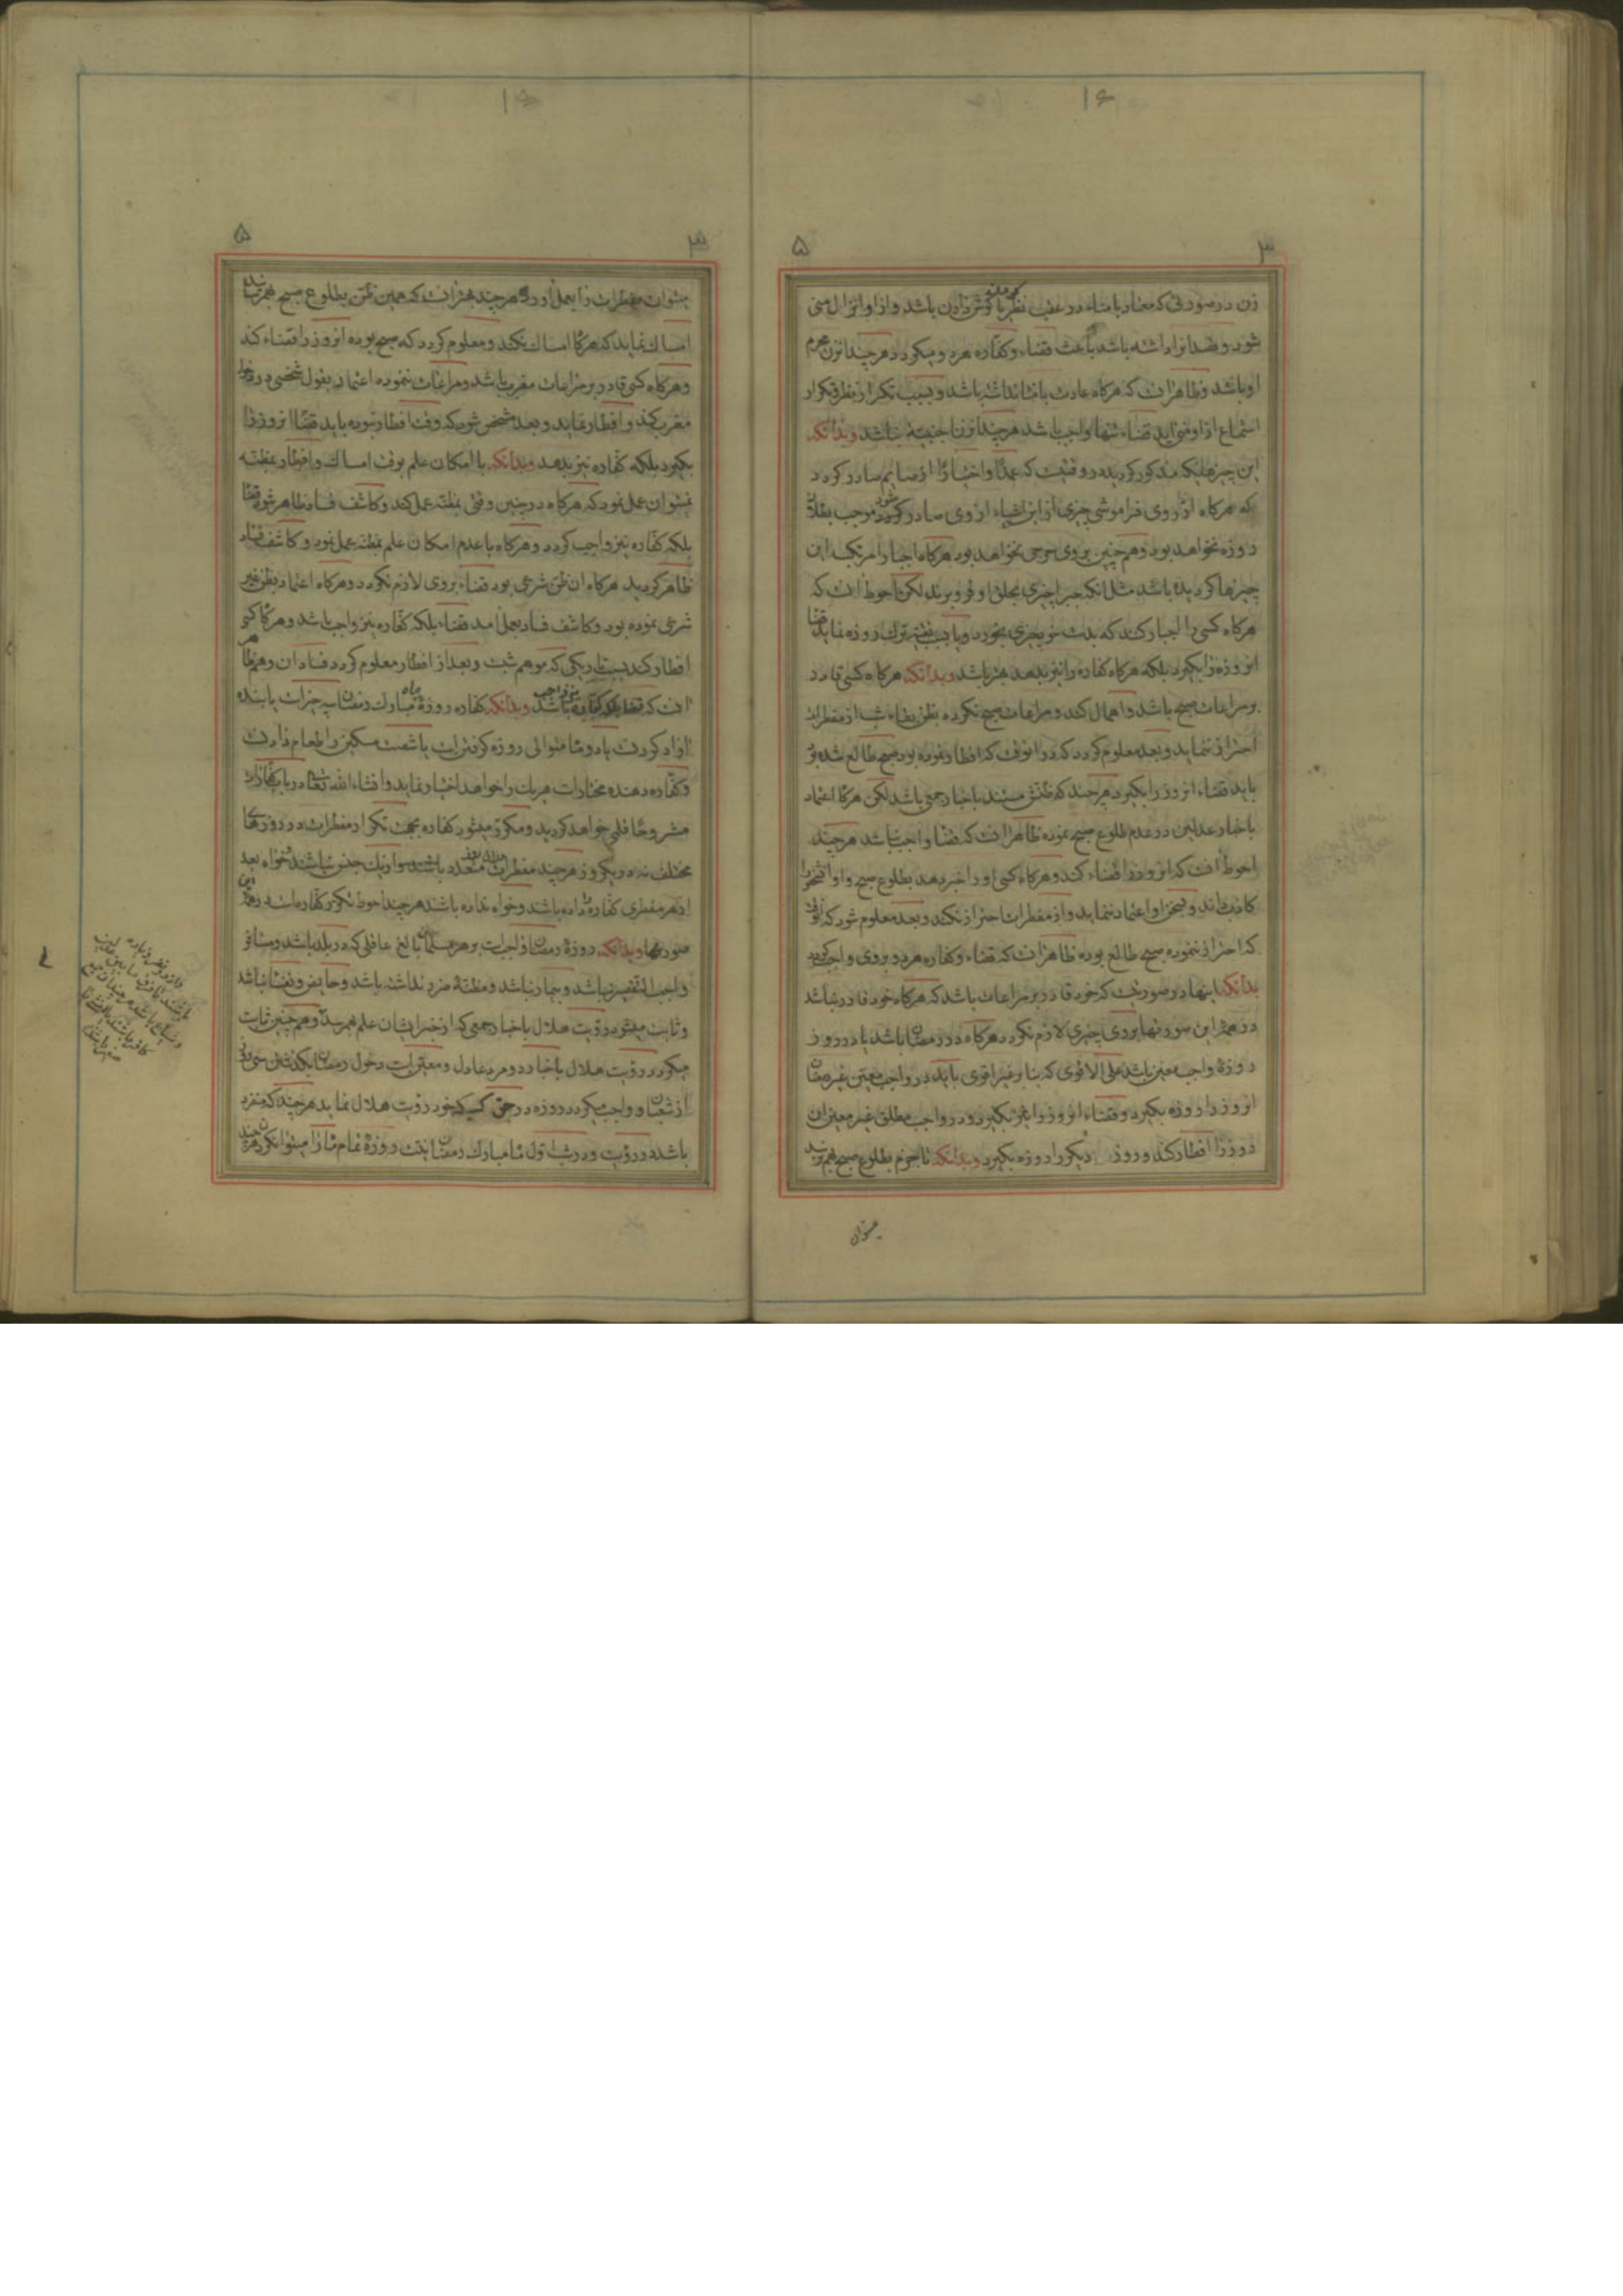 ۱۶
۳ ۵
زن در صورتی که معتاد بامناء در عقب نظر یا گوش دادن باشد و از او انزال منی
شود و قصد انرا داشته باشد باعث قضاء و کفاره هر دو میکردد هرچند ان زن محرم
او باشد و ظاهر انست که هرکاه عادت بامناء نداشته باشد و بسبب تکرار نظر و تکرار
استماع از او منی اید قضاء تنها واجب باشد هرچند ان زن اجنبیه نباشد وبدانکه
این چیزهائیکه مذکور کردید در وقتیست که عمدًا و اختیارًا از صایم صادر کردد
که هرکاه از روی فراموشی چیزی از این اشیاء از وی صادر شود موجب بطلان
روزه نخواهد بود و همچنین بر وی حرجی نخواهد بود هرکاه اجبارا مرتکب این
چیزها کردیده باشد مثل انکه جبرا چیزی بحلق او فرو برند لکن احوط انست که
هرکاه کسی را اجبار کند که بدست خود چیزی بخورد و یا بسبب تقیه ترک روزه نماید قضاء
انروزه را بکیرد بلکه هرکاه کفاره را نیز بدهد بهتر باشد وبدانکه هرکاه کسی قادر
بر مراعات صبح باشد و اهمال کند و مراعات صبح نکرده بظن بقاء شب از مفطرات
احتراز ننماید و بعد معلوم کردد که در انوقت که افطار نموده بود صبح طالع شده بود
باید قضاء انروز را بکیرد هرچند که ظنش مستند باخبار جمعی باشد لکن هرکاه اعتماد
باخبار عدلین در عدم طلوع صبح نموده ظاهر انست که قضا واجب نباشد هرچند
احوط انست که انروز را قضاء کند و هرکاه کسی او را خبر دهد بطلوع صبح و او انشخص را
کاذب داند و بسخن او اعتماد ننماید و از مفطرات احتراز نکند و بعد معلوم شود که انوقت
که احتراز ننموده صبح طالع بوده ظاهر انست که قضاء و کفاره هر دو بر وی واجب کردد
بدانکه اینها در صورتیست که خود قادر بر مراعات باشد که هرکاه خود قادر نباشد
در همه این صورتها بر وی چیزی لازم نکردد هرکاه در رمضان باشد یا در روز
روزهٔ واجب معین باشد علی الاقوی که بنا بر غیر اقوی باید در واجب معین غیر رمضان
انروز را روزه بکیرد و قضاء انروز را نیز بکیرد و در واجب مطلق غیر معین ان
روز را افطار کند و روز دیکر را روزه بکیرد وبدانکه تا جزم بطلوع صبح بهم نرسد
میتوان
۱۶
۳ ۵
میتوان مفطرات را بعمل اورد هرچند بهتر انست که همین ظن بطلوع صبح بهم رساند
امساک نماید که هرکاه امساک نکند و معلوم کردد که صبح بوده انروز را قضاء کند
و هرکاه کسی قادر بر مراعات مغرب باشد و مراعات ننموده اعتماد بقول شخصی در دخول
مغرب کند و افطار نماید و بعد مشخص شود که وقت افطار نبوده باید قضاء انروز را
بکیرد بلکه کفاره نیز بدهد وبدانکه با امکان علم بوقت امساک و افطار بمظنه
نمیتوان عمل نمود که هرکاه در چنین وقتی بمظنه عمل کند و کاشف فساد ظاهر شود قضاء
بلکه کفاره نیز واجب کردد و هرکاه با عدم امکان علم بمظنه عمل نمود و کاشف فساد
ظاهر کردید هرکاه ان ظن شرعی بود قضاء بر وی لازم نکردد و هرکاه اعتماد بظن غیر
شرعی نموده بود و کاشف فساد بعمل امد قضاء بلکه کفاره نیز واجب باشد و هرکاه کسی
افطار کند بسبب تاریکی که موهم شب و بعد از افطار معلوم کردد فساد ان وهم ظاهر
انست که قضا بلکه کفاره نیز واجب باشد وبدانکه کفاره روزهٔ ماه مبارک رمضان سه چیز است یا بنده
ازاد کردنست یا دو ماه متوالی روزه کرفتن است یا شصت مسکین را طعام دادنست
و کفاره دهنده مختار است هر یک را خواهد اختیار نماید و انشاء الله تعالی در باب کفارات
مشروحًا قلمی خواهد کردید و مکرر میشود کفاره بجهت تکرار مفطرات در روزهای
مختلف نه در یکروز هرچند مفطرات متعدد باشند سوا از یک جنس باشند خواه بعد
از هر مفطری کفاره داده باشد و خواه نداده باشد هرچند احوط تکرر کفاره است در همهٔ این
صورتها وبدانکه روزهٔ رمضان واجبست بر هر مسلمان بالغ عاقلی که در بلد باشد و مسافر
واجب التقصیر نباشد و بیمار نباشد و مظنهٔ ضرر نداشته باشد و حایض و نفسا نباشد
و ثابت میشود رؤیت هلال باخبار جمعی که از خبر ایشان علم بهم رسد و همچنین ثابت
میکردد رؤیت هلال باخبار دو مرد عادل و معتبر است دخول رمضان بکذشتن سی روز
از شعبان و واجب میکردد روزه در حق کسیکه خود رؤیت هلال نماید هرچند که منفرد
باشد در رؤیت و در شب اول ماه مبارک رمضان نیت روزهٔ تمام ماه را میتوان کرد هرچند